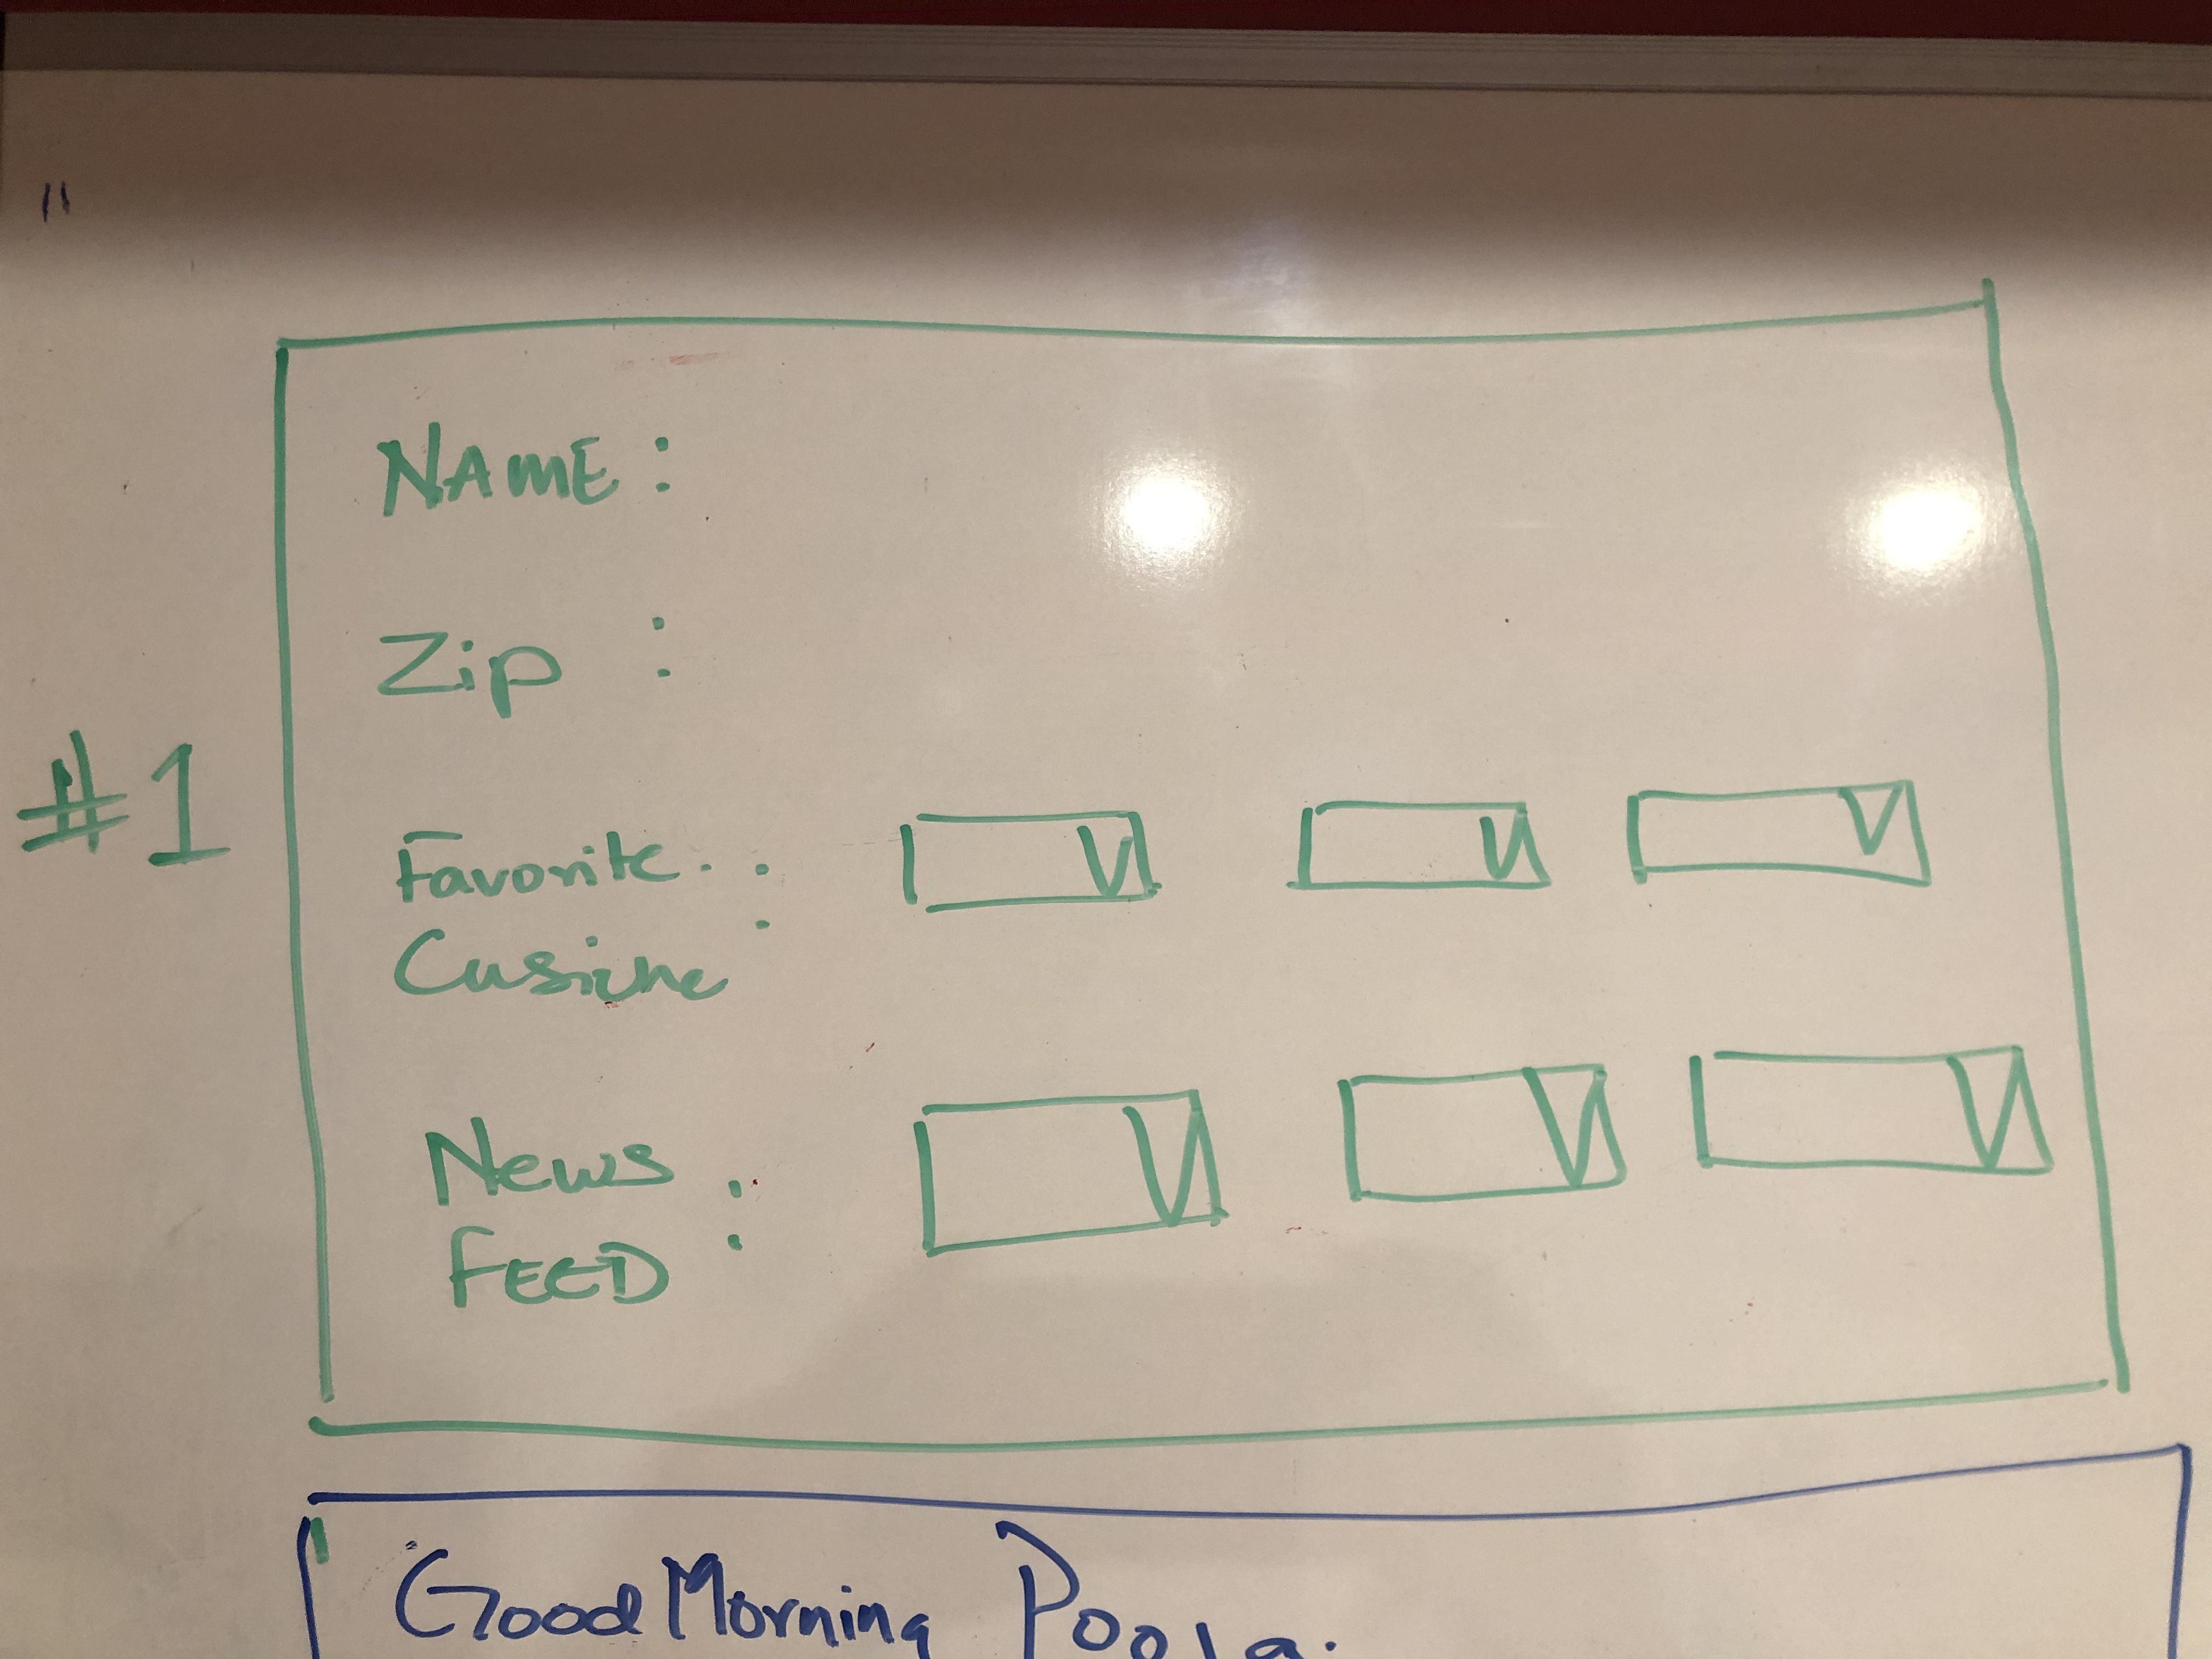 NAME :
Zip :
#1
Favorite :
Cusine
News :
FEED
Good Morning Pooja.